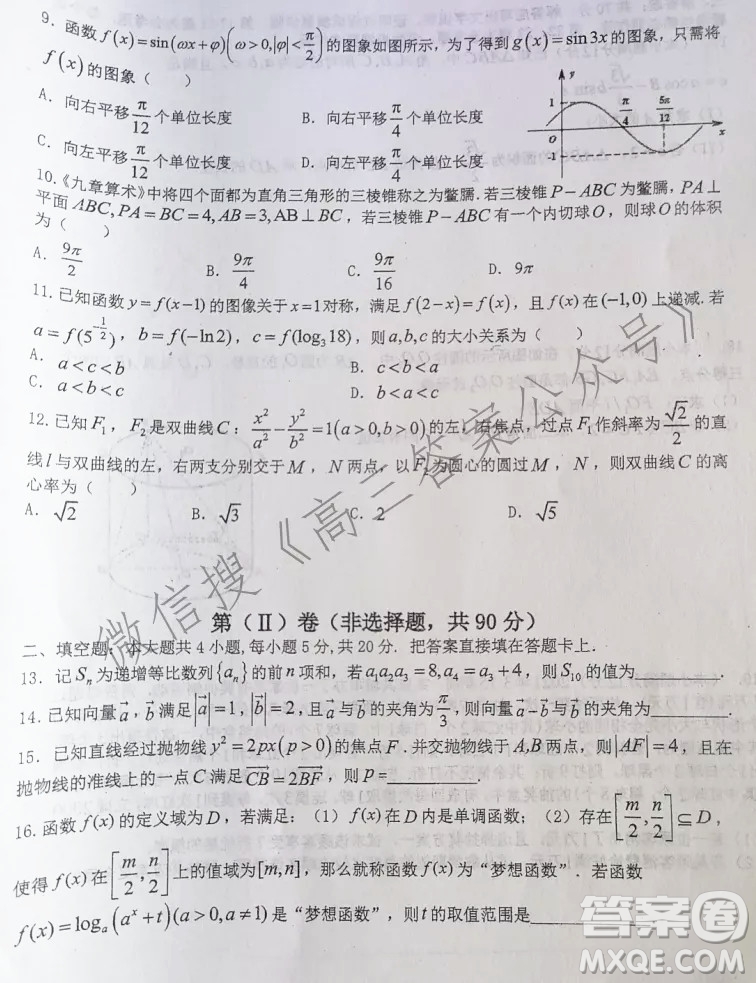 9. 函数 f(x)=sin(ωx+φ)(ω>0,|φ|<π/2) 的图象如图所示，为了得到 g(x)=sin3x 的图象，只需将
f(x) 的图象（ ）
A．向右平移 π/12 个单位长度 B．向右平移 π/4 个单位长度
C．向左平移 π/12 个单位长度 D．向左平移 π/4 个单位长度
y
1
π/4
5π/12
O
x
-1
10.《九章算术》中将四个面都为直角三角形的三棱锥称之为鳖臑．若三棱锥 P－ABC 为鳖臑，PA⊥
平面 ABC, PA=BC=4, AB=3, AB⊥BC，若三棱锥 P－ABC 有一个内切球 O，则球 O 的体积
为（ ）
A．9π/2 B．9π/4 C．9π/16 D．9π
11.已知函数 y=f(x-1) 的图像关于 x=1 对称，满足 f(2-x)=f(x)，且 f(x) 在 (-1,0) 上递减．若
a=f(5^(-1/2))，b=f(-ln2)，c=f(log₃18)，则 a,b,c 的大小关系为（ ）
A．a<c<b B．
C．a<b<c D．b<a<c
12. 已知 F₁，F₂ 是双曲线 C：x²/a²-y²/b²=1(a>0,b>0) 的左，右焦点，过点 F₁ 作斜率为 √2/2 的直
线 l 与双曲线的左，右两支分别交于 M，N 两点，以 F₂ 为圆心的圆过 M，N，则双曲线 C 的离
心率为（ ）
A．√2 B．√3 C．2 D．√5
微信搜《高三答案公众号》
第（Ⅱ）卷（非选择题，共 90 分）
二、填空题：本大题共 4 小题,每小题 5 分,共 20 分．把答案直接填在答题卡上．
13. 记 Sₙ 为递增等比数列 {aₙ} 的前 n 项和，若 a₁a₂a₃=8,a₄=a₃+4，则 S₁₀ 的值为______．
14. 已知向量 a，b 满足 |a|=1，|b|=2，且 a 与 b 的夹角为 π/3，则向量 a-b 与 b 的夹角为______
15．已知直线经过抛物线 y²=2px(p>0) 的焦点 F．并交抛物线于 A,B 两点，则 |AF|=4，且在
抛物线的准线上的一点 C 满足 CB=2BF，则 p=______
16. 函数 f(x) 的定义域为 D，若满足：（1）f(x) 在 D 内是单调函数；（2）存在 [m/2,n/2]⊆D，
使得 f(x) 在 [m/2,n/2] 上的值域为 [m,n]，那么就称函数 f(x) 为“梦想函数”．若函数
f(x)=logₐ(aˣ+t)(a>0,a≠1) 是“梦想函数”，则 t 的取值范围是______
答案圈
MXQE.COM